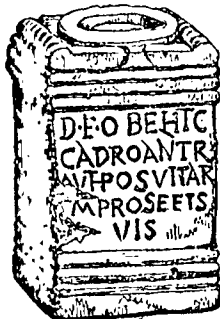 D·E·O BELHTC
CADROANTR
POSVITAR
MPROSEETS
VIS